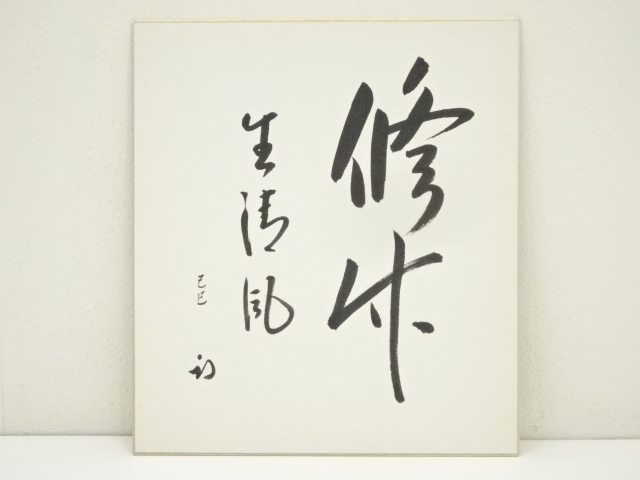 修竹
生清風
己巳